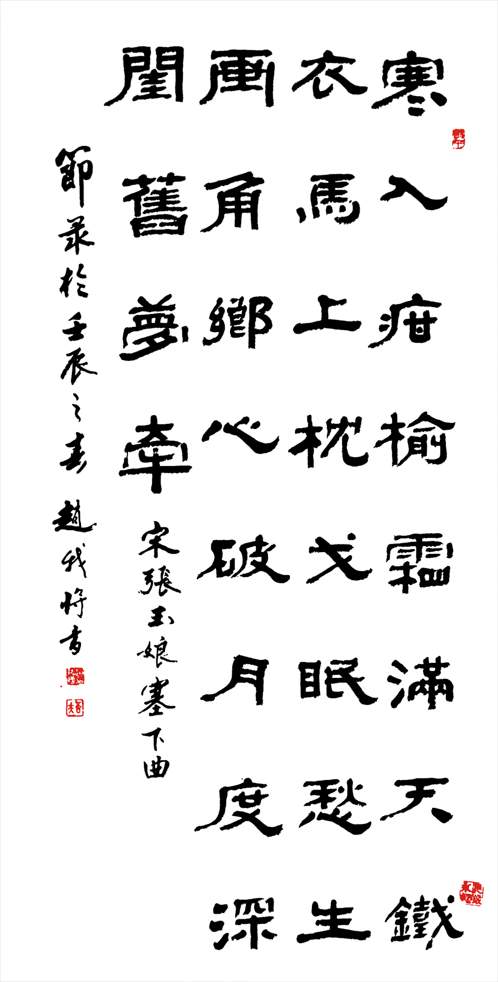 寒入疳榆霜滿天鐵
衣馬上枕戈眠愁生
画角鄉心破月度深
閨舊夢牽
宋張玉娘塞下曲
節录於壬辰之春 趙